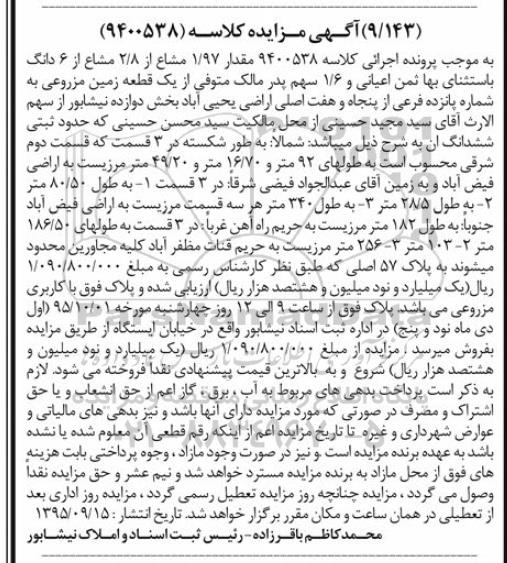 (۹/۱۴۳) آگـهی مـزایده کلاسـه (۹۴۰۰۵۳۸)
به موجب پرونده اجرائی کلاسه ۹۴۰۰۵۳۸ مقدار ۱/۹۷ مشاع از ۲/۸ مشاع از ۶ دانگ
باستثنای بها ثمن اعیانی و ۱/۶ سهم پدر مالک متوفی از یک قطعه زمین مزروعی به
شماره پانزده فرعی از پنجاه و هفت اصلی اراضی یحیی آباد بخش دوازده نیشابور از سهم
الارث آقای سید مجید حسینی از محل مالکیت سید محسن حسینی که حدود ثبتی
ششدانگ آن به شرح ذیل میباشد: شمالا: به طور شکسته در ۳ قسمت که قسمت دوم
شرقی محسوب است به طولهای ۹۲ متر و ۱۶/۷۰ متر و ۴۹/۲۰ متر مرزیست به اراضی
فیض آباد و به زمین آقای عبدالجواد فیضی شرقا: در ۳ قسمت ۱- به طول ۸۰/۵۰ متر
۲- به طول ۲۸/۵ متر ۳- به طول ۳۴۰ متر هر سه قسمت مرزیست به اراضی فیض آباد
جنوبا: به طول ۱۸۲ متر مرزیست به حریم راه آهن غربا: در ۳ قسمت به طولهای ۱۸۶/۵۰
متر ۲- ۱۰۳ متر ۳- ۲۵۶ متر مرزیست به حریم قنات مظفر آباد کلیه مجاورین محدود
میشوند به پلاک ۵۷ اصلی که طبق نظر کارشناس رسمی به مبلغ ۱/۰۹۰/۸۰۰/۰۰۰
ریال(یک میلیارد و نود میلیون و هشتصد هزار ریال) ارزیابی شده و پلاک فوق با کاربری
مزروعی می باشد، پلاک فوق از ساعت ۹ الی ۱۲ روز چهارشنبه مورخه ۹۵/۱۰/۰۱ (اول
دی ماه نود و پنج) در اداره ثبت اسناد نیشابور واقع در خیابان ایستگاه از طریق مزایده
بفروش میرسد . مزایده از مبلغ ۱/۰۹۰/۸۰۰/۰۰۰ ریال (یک میلیارد و نود میلیون و
هشتصد هزار ریال) شروع و به بالاترین قیمت پیشنهادی نقدا فروخته می شود. لازم
به ذکر است پرداخت بدهی های مربوط به آب ، برق ، گاز اعم از حق انشعاب و یا حق
اشتراک و مصرف در صورتی که مورد مزایده دارای آنها باشد و نیز بدهی های مالیاتی و
عوارض شهرداری و غیره تا تاریخ مزایده اعم از اینکه رقم قطعی آن معلوم شده یا نشده
باشد به عهده برنده مزایده است .و نیز در صورت وجود مازاد ، وجوه پرداختی بابت هزینه
های فوق از محل مازاد به برنده مزایده مسترد خواهد شد و نیم عشر و حق مزایده نقداً
وصول می گردد ، مزایده چنانچه روز مزایده تعطیل رسمی گردد ، مزایده روز اداری بعد
از تعطیلی در همان ساعت و مکان مقرر برگزار خواهد شد. تاریخ انتشار : ۱۳۹۵/۰۹/۱۵
محـمدکاظم باقـرزاده - رئـیس ثبـت اسنـاد و امـلاک نیشـابور